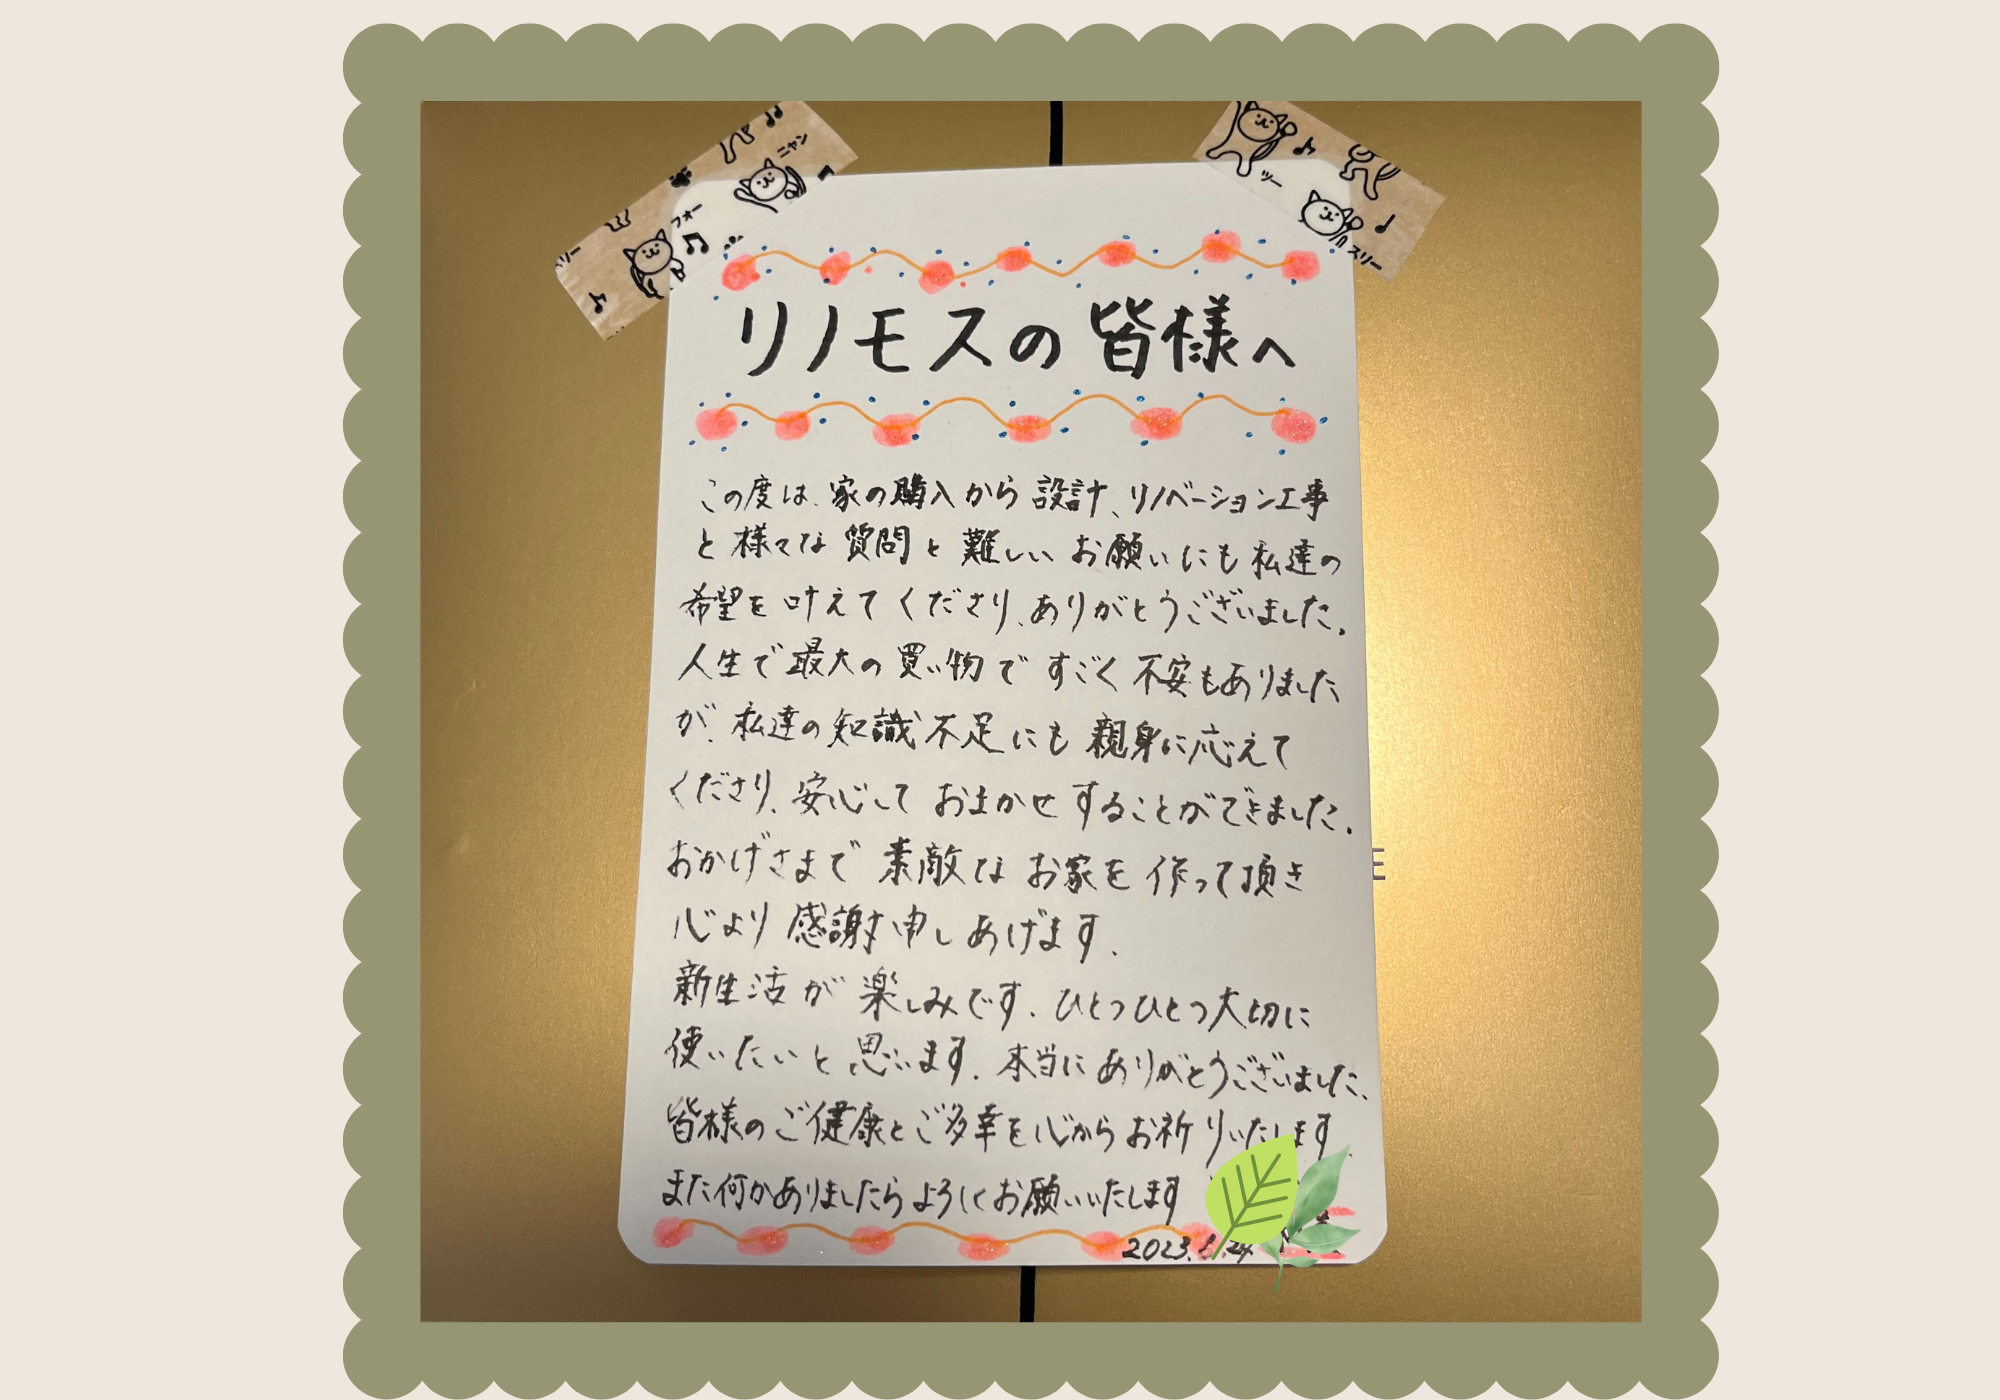 ニャン
フォー
ツー
ツー
スリー
リノモスの皆様へ
この度は、家の購入から設計、リノベーション工事
と様々な質問と難しいお願いにも私達の
希望を叶えてくださり、ありがとうございました。
人生で最大の買い物ですごく不安もありました
が、私達の知識不足にも親身に応えて
くださり、安心しておまかせすることができました。
おかげさまで素敵なお家を作って頂き
心より感謝申しあげます。
新生活が楽しみです。ひとつひとつ大切に
使いたいと思います。本当にありがとうございました、
皆様のご健康とご多幸を心からお祈りいたします
また何かありましたらよろしくお願いいたします
E